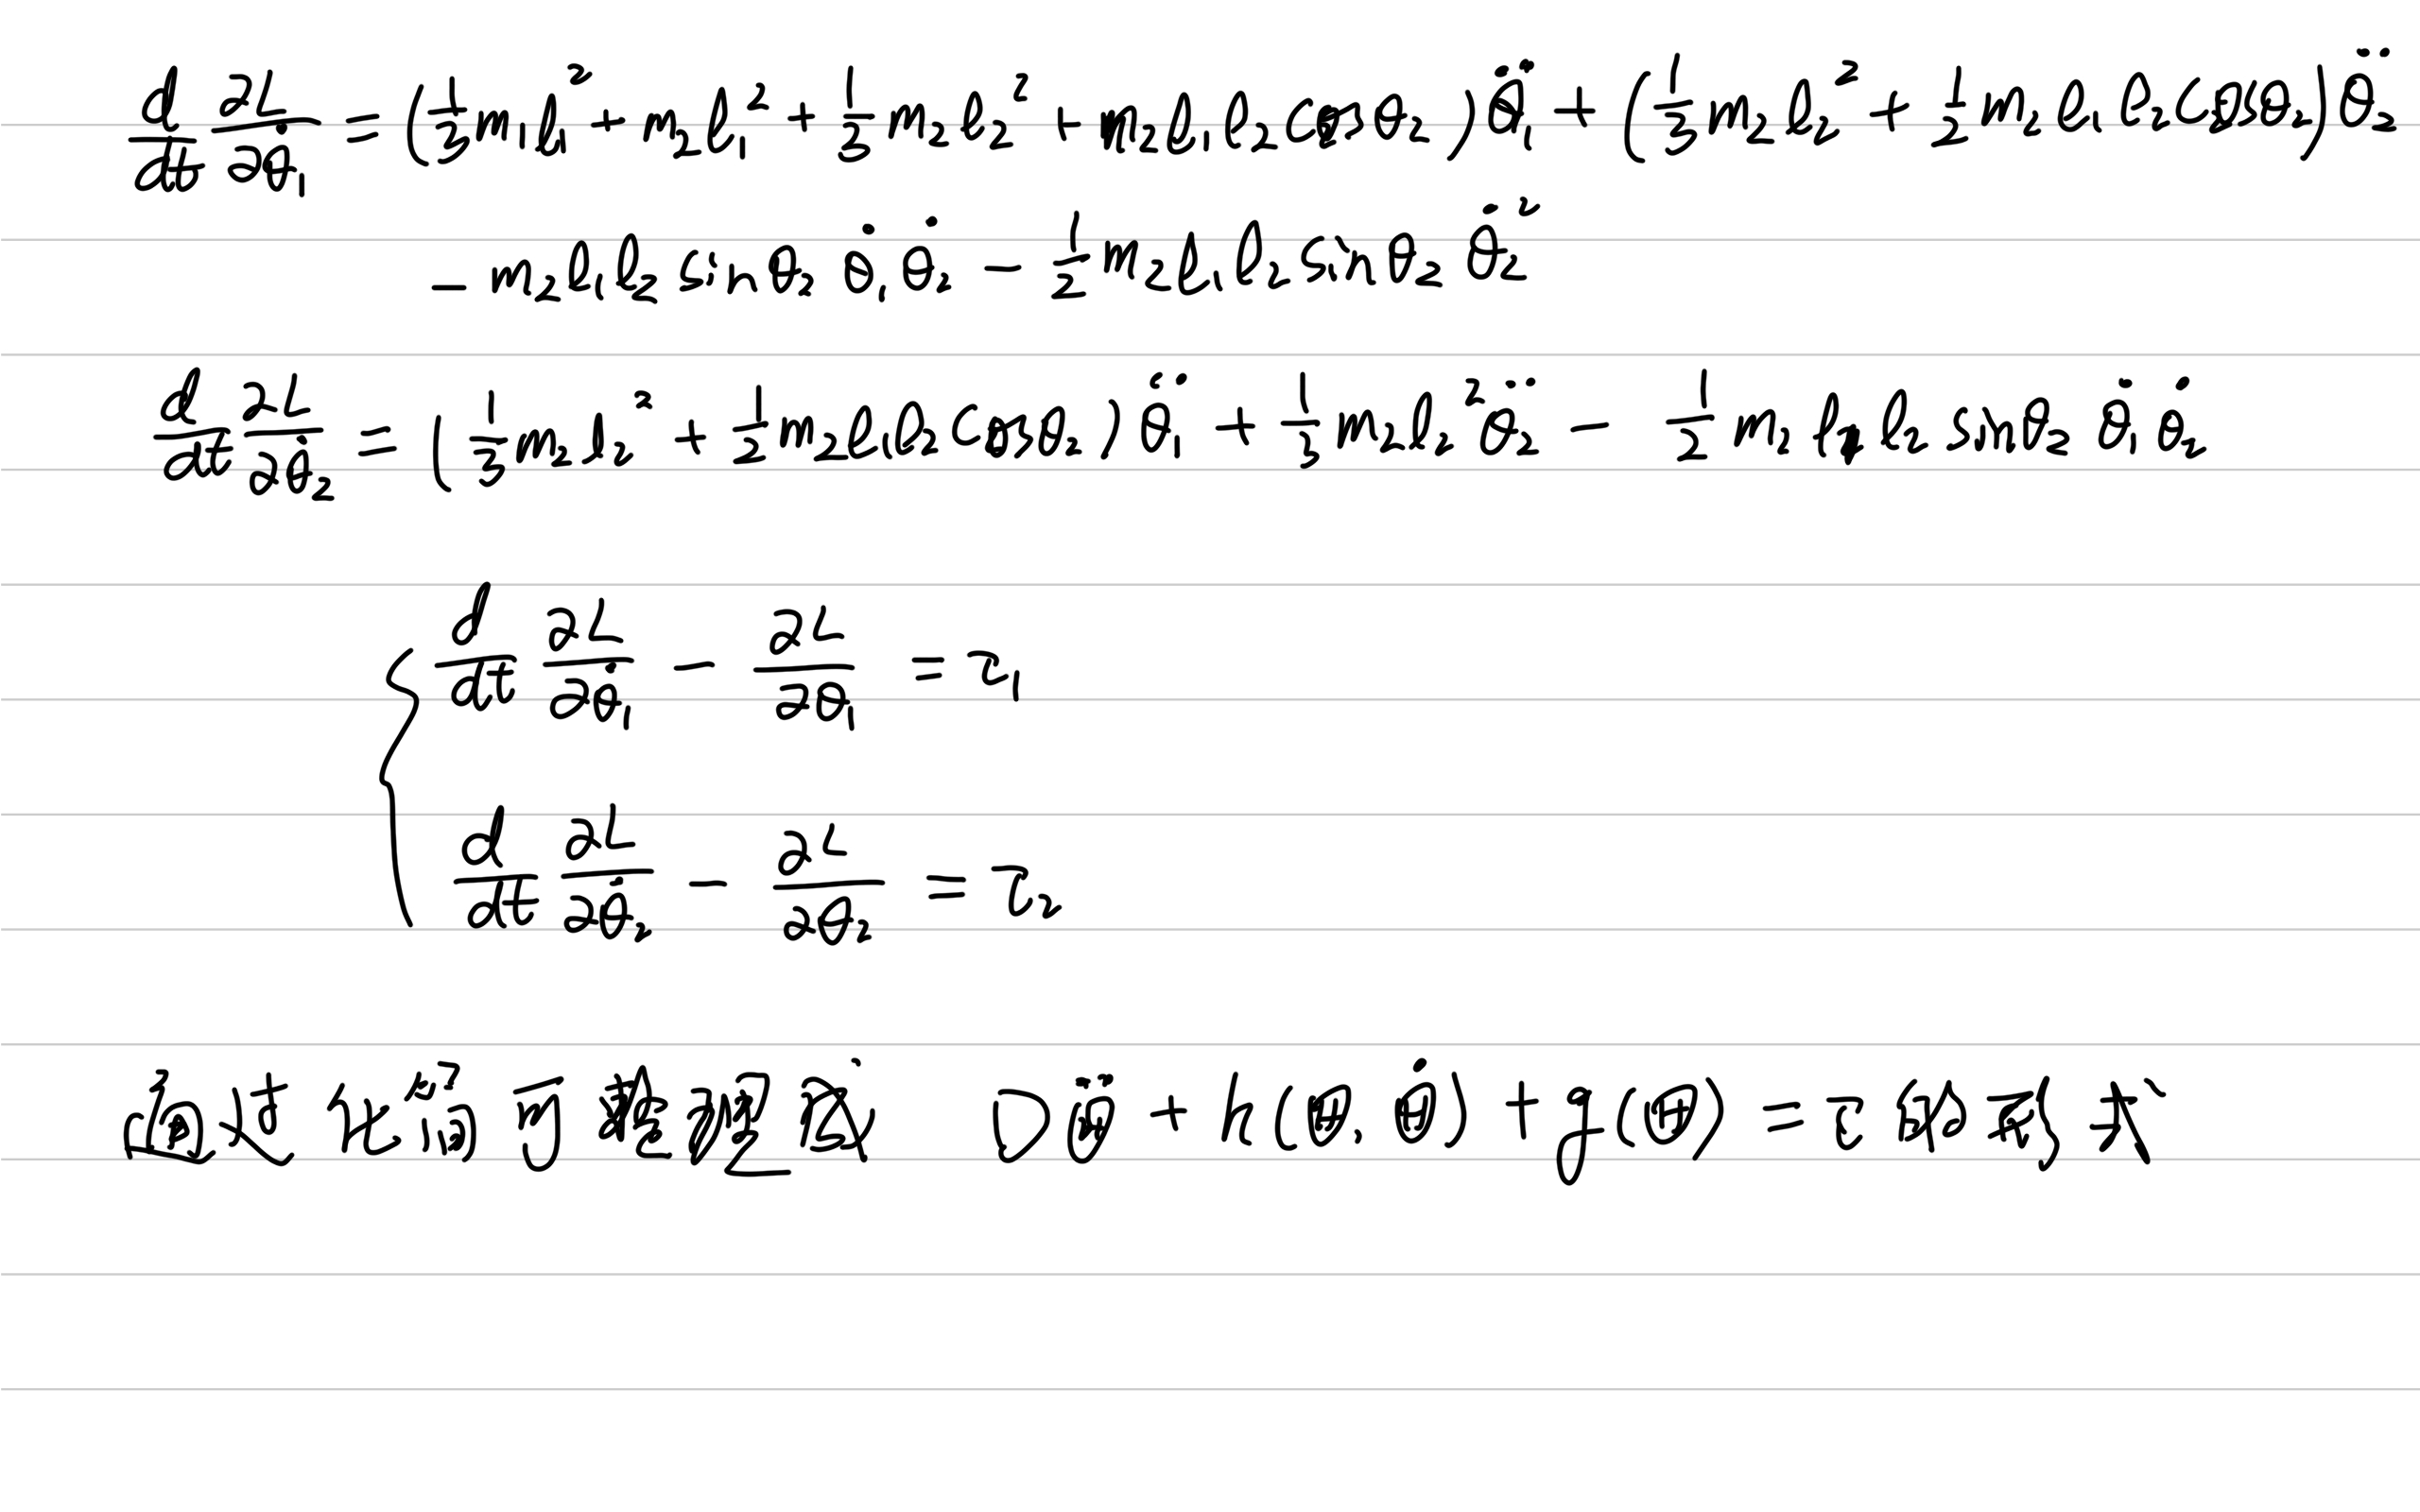 d/dt ∂L/∂θ̇₁ = (1/3 m₁l₁² + m₂l₁² + 1/3 m₂l₂² + m₂l₁l₂cosθ₂)θ̈₁ + (1/3 m₂l₂² + 1/2 m₂l₁l₂cosθ₂)θ̈₂
− m₂l₁l₂sinθ₂ θ̇₁θ̇₂ − 1/2 m₂l₁l₂sinθ₂ θ̇₂²
d/dt ∂L/∂θ̇₂ = (1/3 m₂l₂² + 1/2 m₂l₁l₂cosθ₂)θ̈₁ + 1/3 m₂l₂²θ̈₂ − 1/2 m₂l₁l₂sinθ₂ θ̇₁θ̇₂
{ d/dt ∂L/∂θ̇₁ − ∂L/∂θ₁ = τ₁
d/dt ∂L/∂θ̇₂ − ∂L/∂θ₂ = τ₂
通过化简可整理成 Dθ̈ + h(θ, θ̇) + g(θ) = τ 的形式